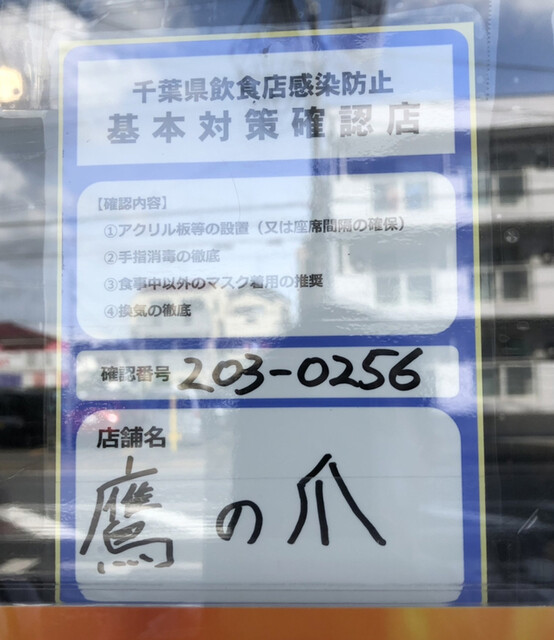 千葉県飲食店感染防止
基本対策確認店
【確認内容】
①アクリル板等の設置（又は座席間隔の確保）
②手指消毒の徹底
③食事中以外のマスク着用の推奨
④換気の徹底
確認番号 203-0256
店舗名
鷹の爪